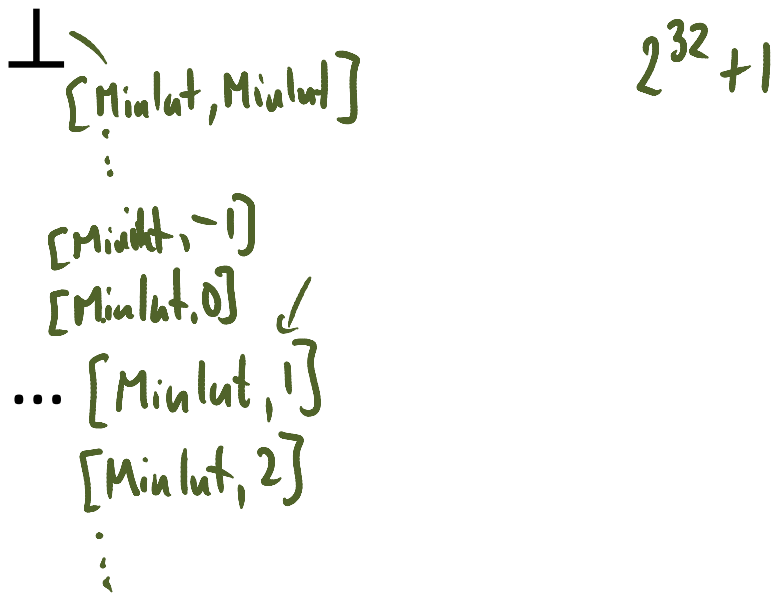 ⊥
[MinInt, MinInt]
⋮
[MinInt, -1]
[MinInt, 0]
... [MinInt, 1]
[MinInt, 2]
⋮
2^32 + 1